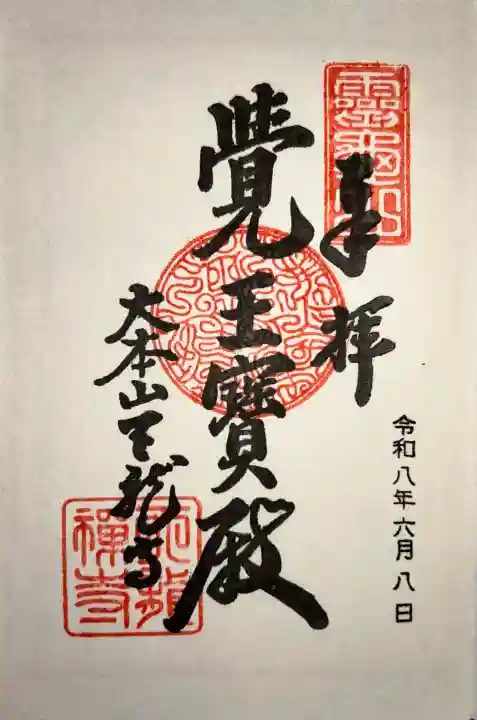 奉拝
令和八年六月八日
覺王寶殿
大本山天龍寺
靈龜山
天龍禪寺